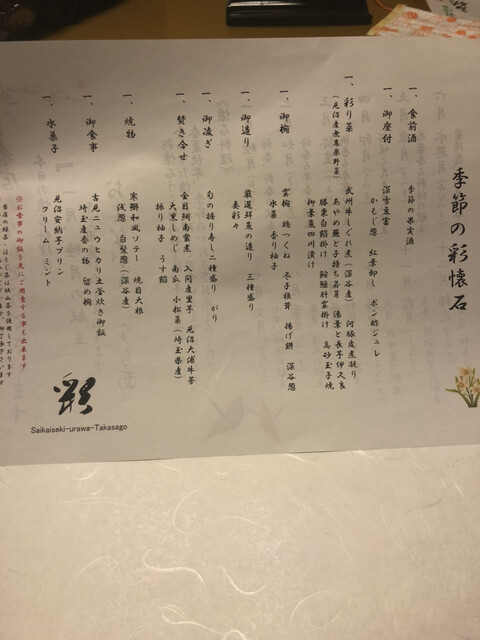 季節の彩懐石
一、食前酒
季節の果実酒
一、御座付
深雪豆富
かもじ葱 紅葉卸し ポン酢ジュレ
一、彩り菜
(見沼産無農薬野菜)
武州牛しぐれ煮(深谷産) 河豚皮煮凝り
あやめ蕪と子持ち若芽 湯葉と長芋伊久良
胡葉白餡掛け 鮟鱇肝雲掛け 高砂玉子焼
御葉魚四川漬け
一、御椀
雲椀 鶏つくね 冬子椎茸 揚げ餅 深谷葱
水菜 香り柚子
一、御造り
厳選鮮魚の造り 三種盛り
妻彩々
一、御凌ぎ
旬の握り寿し二種盛り がり
一、焚き合せ
金目鯛南蛮煮 入間産里子 見沼大浦牛蒡
大黒しめじ 南瓜 小松菜(埼玉県産)
振り柚子 うす餡
一、焼物
寒鰤和風ソテー 焼目大根
浅葱 白髪葱(深谷産)
一、御食事
古見ニュウヒカリ土釜炊き御飯
埼玉産香の物 留め椀
一、水菓子
見沼安納芋プリン
クリーム ミント
※お食事の御飯を先にご用意する事も出来ます
彩
Saikaiseki-urawa-Takasago